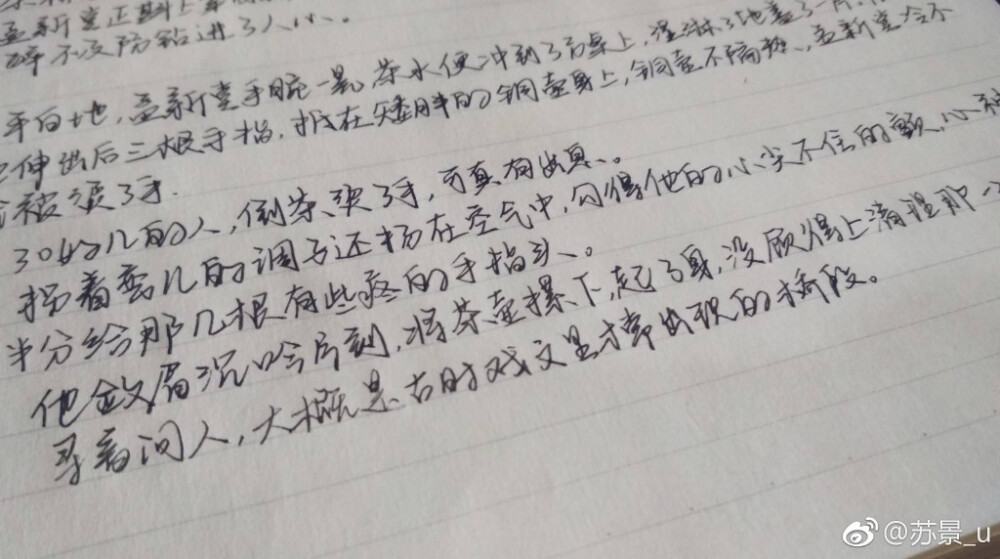 孟新堂正斟上
不及防钻进了人心。
平白地,孟新堂手腕一晃,茶水便冲到了高桌上,湿淋了地盖了一片。
伸出后三根手指,扶在矮胖的铜壶身上,铜壶不隔热、孟新堂冷不
被烫了手.
30好几的人,倒茶烫了手,可真有出息。
拐着弯儿的调子还扬在空气中,勾得他的心尖不住的颤,
半分给那几根有些疼的手指头、。
他敛眉沉吟片刻,将茶壶撂下,起了身,没顾得上清理那
寻着问人,大概是古时戏文里才常出现的桥段。
@苏景_u